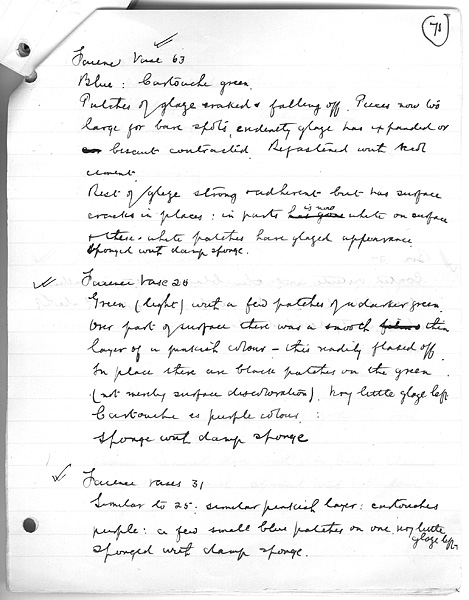 71
Faience Vase 63
Blue : Cartouche green.
Patches of glaze cracked & falling off. Pieces now too
large for bare spots, evidently glaze has expanded or
biscuit contracted. Refastened with
cement.
Rest of glaze strong & adherent but has surface
cracks in places : in parts is now white on surface
& these white patches have glazed appearance.
Sponged with damp sponge.
Faience Vase 25
Green (light) with a few patches of a darker green.
Over part of surface there was a smooth thin
layer of a pinkish colour – this readily flaked off.
In place there are black patches on the green
(not merely surface discolouration). Very little glaze left.
Cartouche is purple colour. :
Sponge with damp sponge
Faience vases 31
Similar to 25 : similar pinkish layer : cartouches
purple : a few small blue patches on one. very little
glaze left.
Sponged with damp sponge.